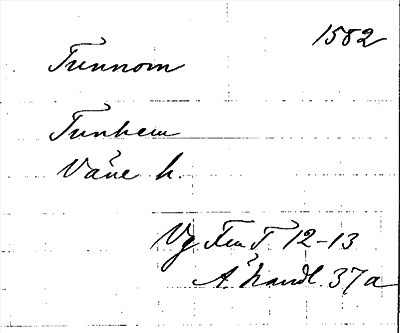 1582
Tunnom
Tunhem
Väne h.
Vg Fem T. 12-13
Ä. handl. 37a